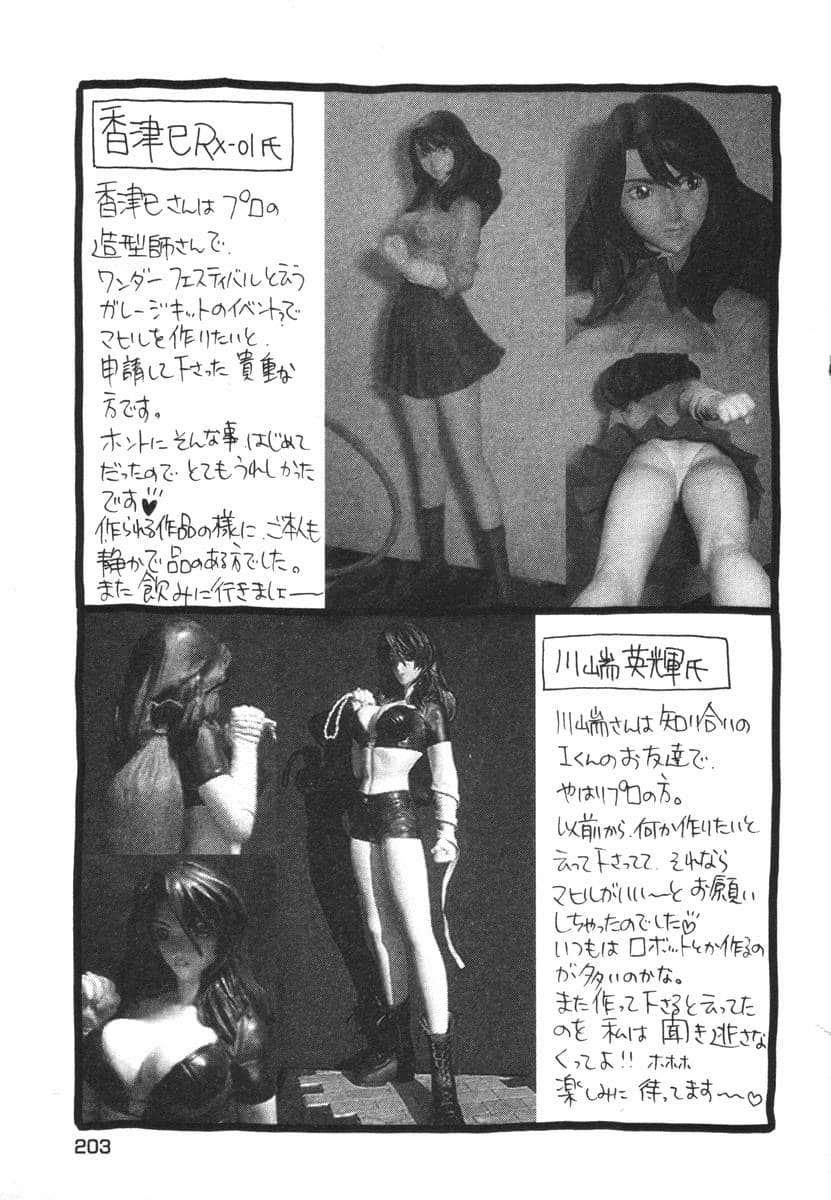 香津巳RX-01氏
香津巳さんはプロの
造型師さんで、
ワンダーフェスティバルと云う
ガレージキットのイベントで
マヒルを作りたいと、
申請して下さった貴重な
方です。
ホントにそんな事はじめて
だったので とてもうれしかった
です♥
作られる作品の様に、ご本人も
静かで品のある方でした。
また飲みに行きましょ――
川端英輝氏
川端さんは知り合いの
Iくんのお友達で、
やはりプロの方。
以前から、何か作りたいと
云って下さってて、それなら
マヒルがいい～とお願い
しちゃったのでした♡
いつもはロボットとか作るの
が多いのかな。
また作って下さると云ってた
のを 私は聞き逃さな
くってよ!! ホホホ
楽しみに待ってます～♡
203